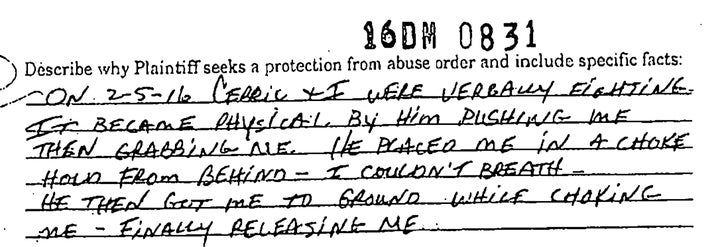 16DM 0831
Describe why Plaintiff seeks a protection from abuse order and include specific facts:
ON 2-5-16 CEDRIC + I WERE VERBALLY FIGHTING.
IT BECAME PHYSICAL BY HIM PUSHING ME
THEN GRABBING ME. HE PLACED ME IN A CHOKE
HOLD FROM BEHIND - I COULDN'T BREATH -
HE THEN GOT ME TO GROUND WHILE CHOKING
ME - FINALLY RELEASING ME.